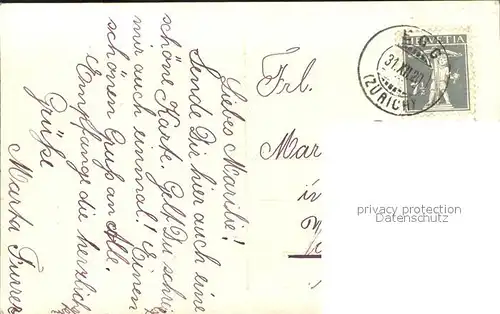 Liebes Marilie!
Sende Dir hier auch eine
schöne Karte. Gell Du schrei
mir auch einmal! Einen
schönen Gruß an Alle.
Empfange die herzlich
Grüße
Marta Furrer
Frl.
Mar
in
HELVETIA
7½
31.XII.20
(ZÜRICH)
privacy protection
Datenschutz